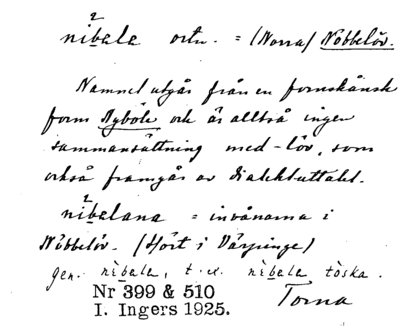 2
nibele ortn. = (Norra) Nöbbelöv.
Namnet utgår från en fornskånsk
form Nyböle och är alltså ingen
sammansättning med -löv, som
också framgår av dialektuttalet.
2
nibelana = invånarna i
Nöbbelöv. (Hört i Värpinge)
gen. nibela, t.ex. nibela töska.
Nr 399 & 510
I. Ingers 1925.
Torna